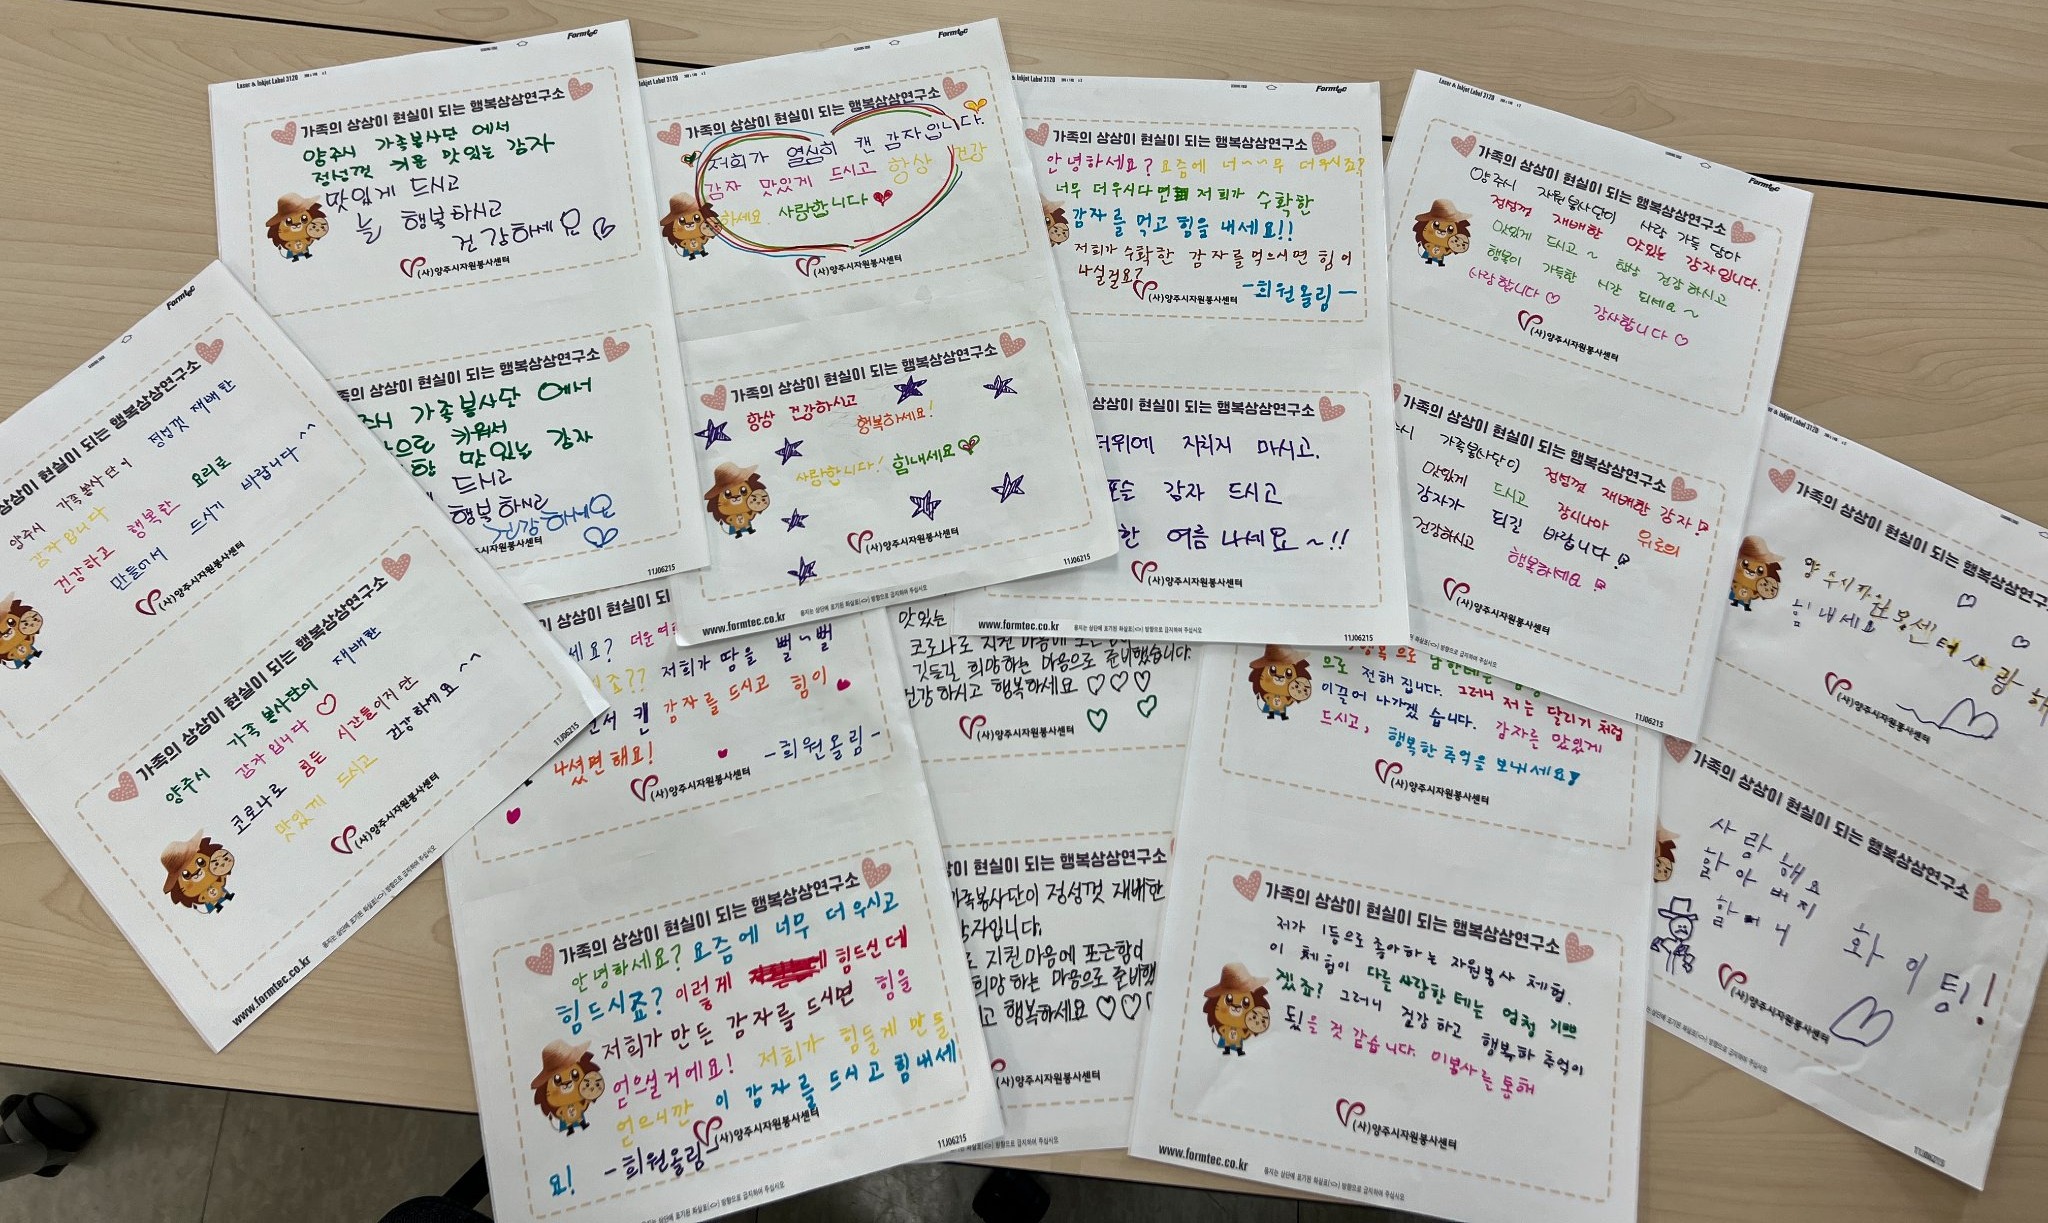 Laser & Inkjet Label 3120
Formtec
가족의 상상이 현실이 되는 행복상상연구소
양주시 가족봉사단 에서
정성껏 키운 맛있는 감자
맛있게 드시고
늘 행복하시고
건강하세요
(사)양주시자원봉사센터
상상이 현실이 되는 행복상상연구소
가족봉사단 에서
키워서
맛있는 감자
드시고
행복하시고
건강하세요
양주시자원봉사센터
11J06215
Formtec
가족의 상상이 현실이 되는 행복상상연구소
저희가 열심히 캔 감자입니다.
감자 맛있게 드시고 항상 건강
하세요. 사랑합니다
(사)양주시자원봉사센터
가족의 상상이 현실이 되는 행복상상연구소
항상 건강하시고
행복하세요!
사랑합니다! 힘내세요
(사)양주시자원봉사센터
11J06215
www.formtec.co.kr
용지는 상단에 표기된 화살표(<>) 방향으로 급지하여 주십시오
& Inkjet Label 3120
Formtec
가족의 상상이 현실이 되는 행복상상연구소
안녕하세요? 요즘에 너~~무 더우시죠?
너무 더우시다면 저희가 수확한
감자를 먹고 힘을 내세요!!
저희가 수확한 감자를 먹으시면 힘이
나실걸요?
(사)양주시자원봉사센터
-희원올림-
상상이 현실이 되는 행복상상연구소
더위에 지치지 마시고.
감자 드시고
한 여름 나세요~!!
(사)양주시자원봉사센터
www.formtec.co.kr
용지는 상단에 표기된 화살표(<>) 방향으로 급지하여 주십시오
11J06215
Laser & Inkjet Label 3120
Formtec
가족의 상상이 현실이 되는 행복상상연구소
양주시 자원봉사단이 사랑 가득 담아
정성껏 재배한 맛있는 감자입니다.
맛있게 드시고~ 항상 건강하시고
행복이 가득한 시간 되세요~
사랑합니다♡ 감사합니다♡
(사)양주시자원봉사센터
가족의 상상이 현실이 되는 행복상상연구소
가족봉사단이 정성껏 재배한 감자!
맛있게 드시고 잠시나마 위로의
감자가 되길 바랍니다!
건강하시고 행복하세요
(사)양주시자원봉사센터
11J06215
Formtec
상상이 현실이 되는 행복상상연구소
양주시 가족봉사단이 정성껏 재배한
감자입니다
건강하고 행복한 요리로
만들어서 드시기 바랍니다^^
(사)양주시자원봉사센터
가족의 상상이 현실이 되는 행복상상연구소
양주시 가족봉사단이 재배한
감자입니다♡
코로나로 힘든 시간들이지만
맛있게 드시고 건강하세요^^
(사)양주시자원봉사센터
11J06215
www.formtec.co.kr
용지는 상단에 표기된 화살표(<>) 방향으로 급지하여 주십시오
상상이 현실이 되
세요? 더운
죠?? 저희가 땅을 뻘~뻘
캔 감자를 드시고 힘이
나셨면 해요!
-희원올림-
(사)양주시자원봉사센터
가족의 상상이 현실이 되는 행복상상연구소
안녕하세요? 요즘에 너무 더우시고
힘드시죠? 이렇게 힘드신데
저희가 만든 감자를 드시면 힘을
얻으실거에요! 저희가 힘들게 만들
얻으니깐 이 감자를 드시고 힘내세
요! -희원올림-
(사)양주시자원봉사센터
11J06215
맛있는
코로나로 지친 마음에
깃들길 희망하는 마음으로 준비했습니다.
건강하시고 행복하세요♡♡♡
(사)양주시자원봉사센터
상상이 현실이 되는 행복상상연구소
가족봉사단이 정성껏 재배한
감자입니다.
지친 마음에 포근함이
희망하는 마음으로 준비했
행복하세요♡♡
(사)양주시자원봉사센터
으로 전해 집니다. 그러니 저는 달리기 처럼
이끌어 나가겠 습니다. 감자를 맛있게
드시고, 행복한 추억을 보내세요
(사)양주시자원봉사센터
가족의 상상이 현실이 되는 행복상상연구소
저가 1등으로 좋아하는 자원봉사 체험.
이 체험이 다른 사람한 테는 엄청 기쁘
겠죠? 그러니 건강 하고 행복하 추억이
됬을 것 같습니다. 이봉사를 통해
(사)양주시자원봉사센터
www.formtec.co.kr
용지는 상단에 표기된 화살표(<>) 방향으로 급지하여 주십시오
& Inkjet Label 3120
가족의 상상이 현실이 되는 행복상상연구
힘내세요
(사)양주시자원봉사센터
가족의 상상이 현실이 되는 행복상상연구소
사랑해요
할아버지
할머니 화이팅!
(사)양주시자원봉사센터
11J06215